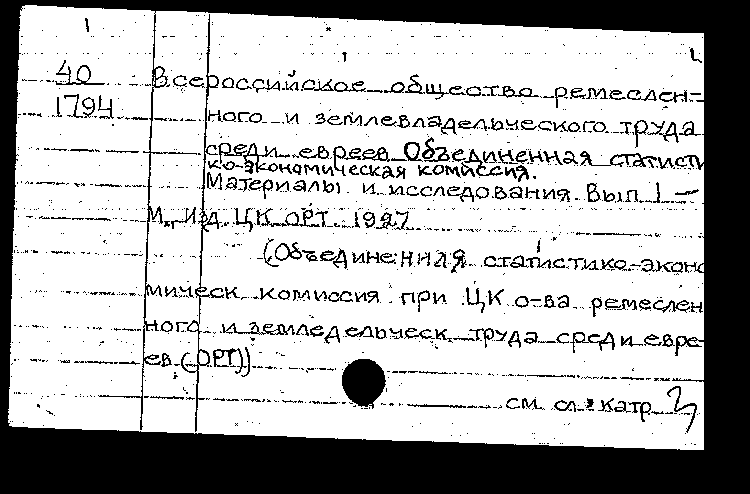 40
1794
Всероссийское общество ремеслен-
ного и землевладельческого труда
среди евреев Объединенная статисти
ко-экономическая комиссия.
Материалы и исследования. Вып 1 —
М., Изд. ЦК ОРТ. 1927
(Объединенная статистико-эконо
мическ комиссия при ЦК о-ва ремеслен
ного и земледельческ труда среди евре-
ев (ОРТ))
см сл. катр